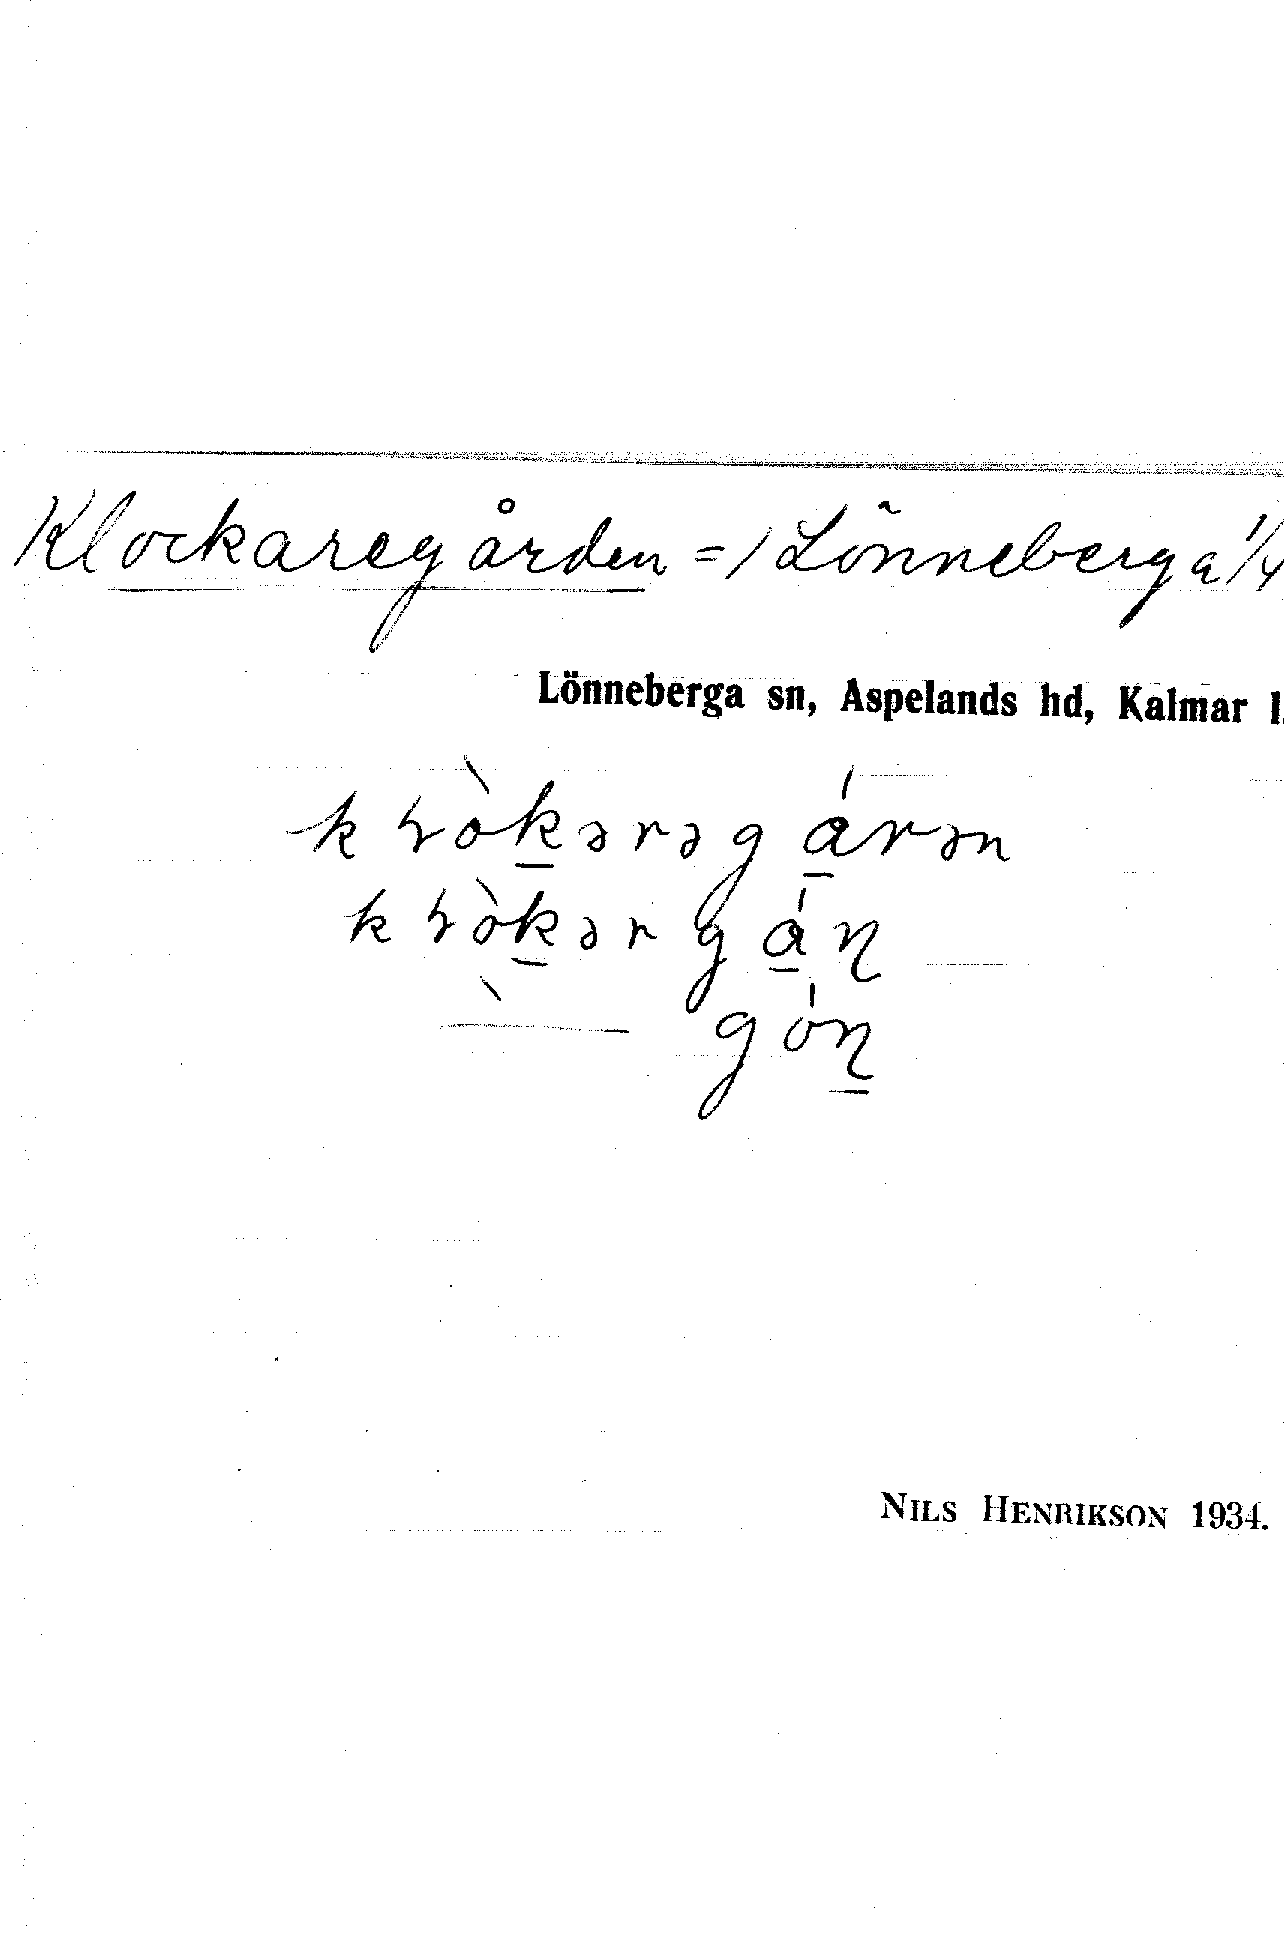 Klockaregården =/ Lönneberga 1/4
Lönneberga sn, Aspelands hd, Kalmar l.
kɽòk̲ərəgá̲rən
kɽòk̲ərgá̲ɳ
— góɳ̲
NILS HENRIKSON 1934.